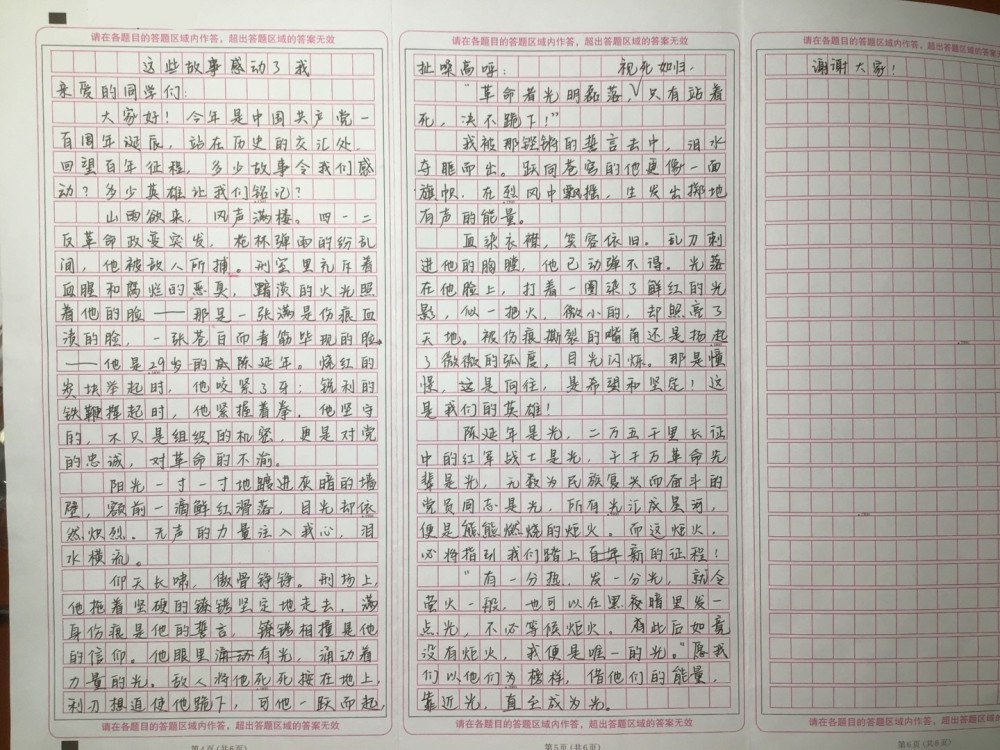 请在各题目的答题区域内作答，超出答题区域的答案无效
这些故事感动了我
亲爱的同学们：
大家好！今年是中国共产党一
百周年诞辰，站在历史的交汇处，
回望百年征程，多少故事令我们感
动？多少英雄让我们铭记？
山雨欲来，风声满楼。四一二
反革命政变突发，枪林弹雨的纷乱
间，他被敌人所捕。刑室里充斥着
血腥和腐烂的恶臭，黯淡的火光照
着他的脸——那是一张满是伤痕血
渍的脸，一张苍白而青筋毕现的脸。
——他是29岁的陈延年。烧红的
炭块举起时，他咬紧了牙；锐利的
铁鞭挥起时，他紧握着拳。他坚守
的，不只是组织的机密，更是对党
的忠诚，对革命的不渝。
阳光一寸一寸地踱进灰暗的墙
壁，额前一滴鲜红滑落，目光却依
然炽烈。无声的力量注入我心，泪
水横流。
仰天长啸，傲骨铮铮。刑场上，
他拖着坚硬的镣铐坚定地走去，满
身伤痕是他的誓言，镣铐相撞是他
的信仰。他眼里有光，涌动着
力量的光。敌人将他死死按在地上，
利刃想迫使他跪下，可他一跃而起，
请在各题目的答题区域内作答，超出答题区域的答案无效
第4页(共6页)
请在各题目的答题区域内作答，超出答题区域的答案无效
扯嗓高呼： 视死如归，
“革命者光明磊落，只有站着
死，决不跪下！”
我被那铿锵的誓言击中，泪水
夺眶而出。跃向苍穹的他更像一面
旗帜，在烈风中飘摇，生发出掷地
有声的能量。
血染衣襟，笑容依旧。乱刀刺
进他的胸膛，他已动弹不得。光落
在他脸上，打着一圈染了鲜红的光
影，似一把火，微小的，却照亮了
天地。被伤痕撕裂的嘴角还是扬起
了微微的弧度，目光闪烁。那是憧
憬，这是向往，是希望和坚定！这
是我们的英雄！
陈延年是光，二万五千里长征
中的红军战士是光，千千万革命先
辈是光，无数为民族复兴而奋斗的
党员同志是光，所有光汇成星河，
便是熊熊燃烧的炬火。而这炬火，
必将指引我们踏上百年新的征程！
“有一分热，发一分光，就令
萤火一般，也可以在黑夜暗里发一
点光，不必等候炬火。有此后如竟
没有炬火，我便是唯一的光。”愿我
们以他们为榜样，借他们的能量，
靠近光，直至成为光。
请在各题目的答题区域内作答，超出答题区域的答案无效
第5页(共6页)
请在各题目的答题区域内作答，超出答题区域的答案无效
谢谢大家！
请在各题目的答题区域内作答，超出答题区域的答案无效
第6页(共6页)